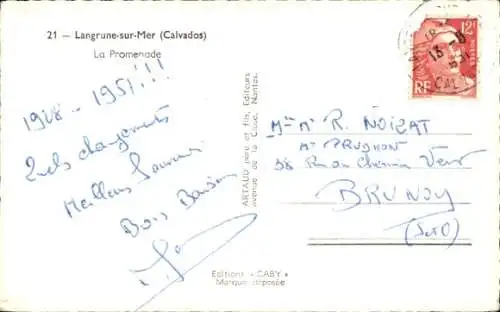 21 - Langrune-sur-Mer (Calvados)
La Promenade
1948 - 1951 !!!
Quels changements
Meilleurs Souvenirs
Bons Baisers
ARTAUD père et fils, Editeurs
avenue de la Close, Nantes.
Editions "GABY"
Marque déposée
12F
RF
13 - 8
CAL
Mme Mr R. NOIZAT
Mr PRUDHON
38 Rue du Chemin Vert
BRUNOY
(S et O)